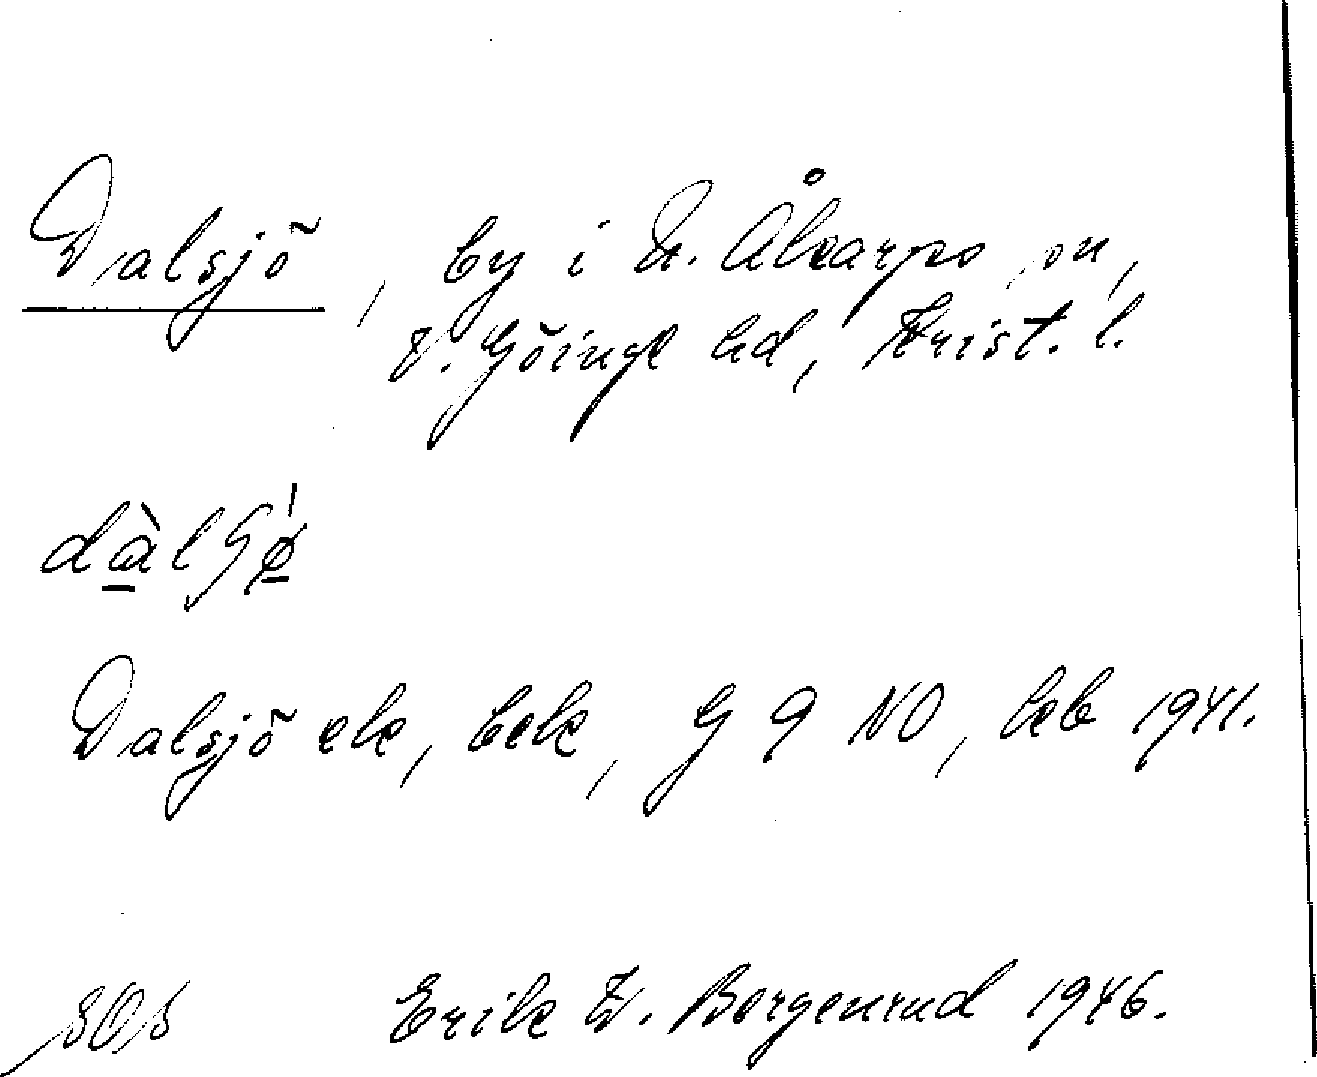 Dalsjö, by i N. Åkarps sn,
V. Göinge hd, Krist. l.
dàlʃø̍
Dalsjö ek, bek, G 9 NO, keb 1941.
Erik W. Borgenrud 1946.